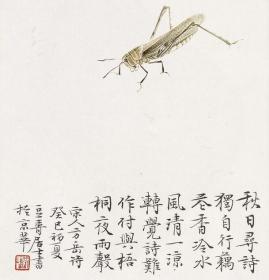 秋日尋詩
獨自行藕
花香冷水
風清一涼
轉覺詩難
作付與梧
桐夜雨聲
宋人方岳诗
癸巳初夏
於京華